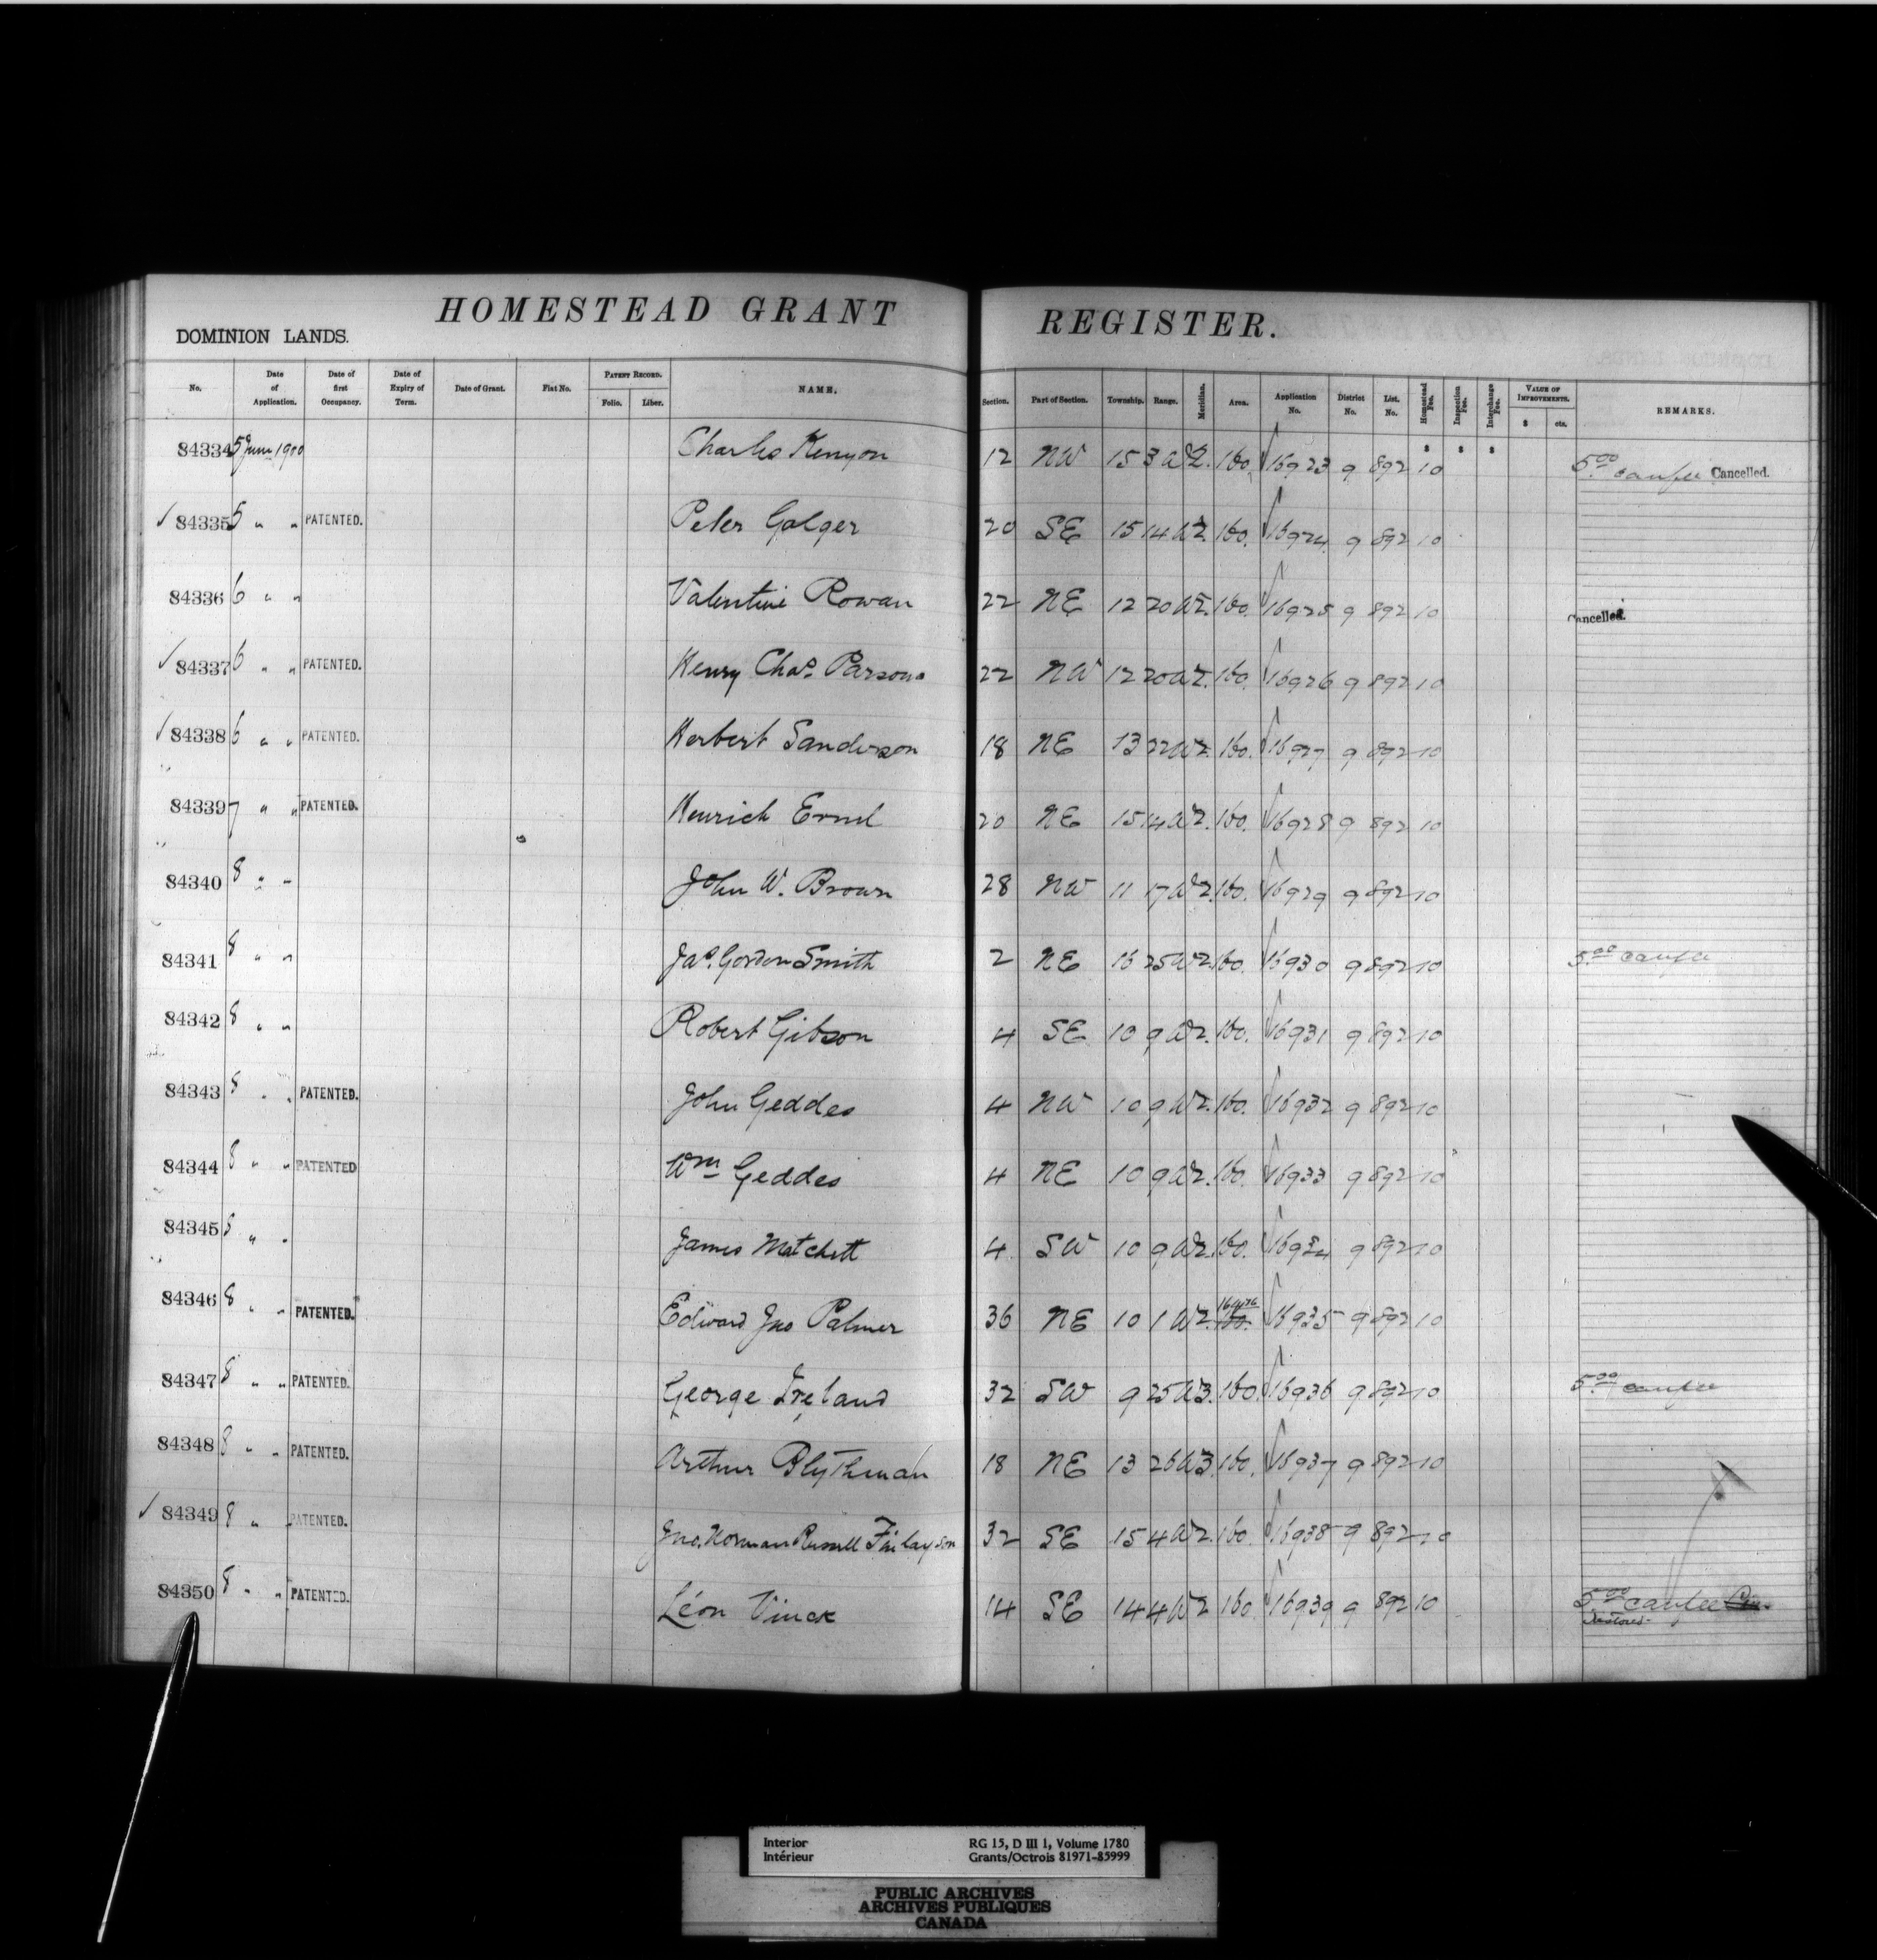 HOMESTEAD GRANT REGISTER.
DOMINION LANDS.
No. Date of Application. Date of first Occupancy. Date of Expiry of Term. Date of Grant. Fiat No. PATENT RECORD. Folio. Liber. NAME. Section. Part of Section. Township. Range. Meridian. Area. Application No. District No. List. No. Homestead Fee. Inspection Fee. Interchange Fee. VALUE OF IMPROVEMENTS. $ cts. REMARKS.
$ $ $
84334 5 June 1900 Charles Kenyon 12 NW 15 3 W2. 160. 16923 9 892 10 5.00 canfee Cancelled.
84335 5 " " PATENTED. Peter Golger 20 SE 15 14 W2. 160. 16924 9 892 10
84336 6 " " Valentine Rowan 22 NE 12 20 W2. 160. 16925 9 892 10 Cancelled.
84337 6 " " PATENTED. Henry Chas. Parsons 22 NW 12 20 W2. 160. 16926 9 892 10
84338 6 " " PATENTED. Herbert Sanderson 18 NE 13 22 W2. 160. 16927 9 892 10
84339 7 " " PATENTED. Heinrich 20 NE 15 14 W2. 160. 16928 9 892 10
84340 8 " " John W. Brown 28 NW 11 17 W2. 160. 16929 9 892 10
84341 8 " " Jas. Gordon Smith 2 NE 16 25 W2 160. 16930 9 892 10 5.00 canfee
84342 8 " " Robert Gibson 4 SE 10 9 W2. 160. 16931 9 892 10
84343 8 " " PATENTED. John Geddes 4 NW 10 9 W2. 160. 16932 9 892 10
84344 8 " " PATENTED Wm Geddes 4 NE 10 9 W2. 160. 16933 9 892 10
84345 8 " " James Matchett 4 SW 10 9 W2. 160. 16934 9 892 10
84346 8 " " PATENTED. Edward Jno Palmer 36 NE 10 1 W2. 160. 16935 9 892 10
84347 8 " " PATENTED. George Ireland 32 SW 9 25 W3. 160. 16936 9 892 10 5.00 canfee
84348 8 " " PATENTED. Arthur Blythman 18 NE 13 26 W3. 160. 16937 9 892 10
84349 8 " " PATENTED. Jno. Norman Russell Finlayson 32 SE 15 4 W2. 160. 16938 9 892 10
84350 8 " " PATENTED. Léon Vinck 14 SE 14 4 W2 160 16939 9 892 10 5.00 canfee
Restored.
Interior RG 15, D III 1, Volume 1780
Intérieur Grants/Octrois 81971-85999
PUBLIC ARCHIVES
ARCHIVES PUBLIQUES
CANADA